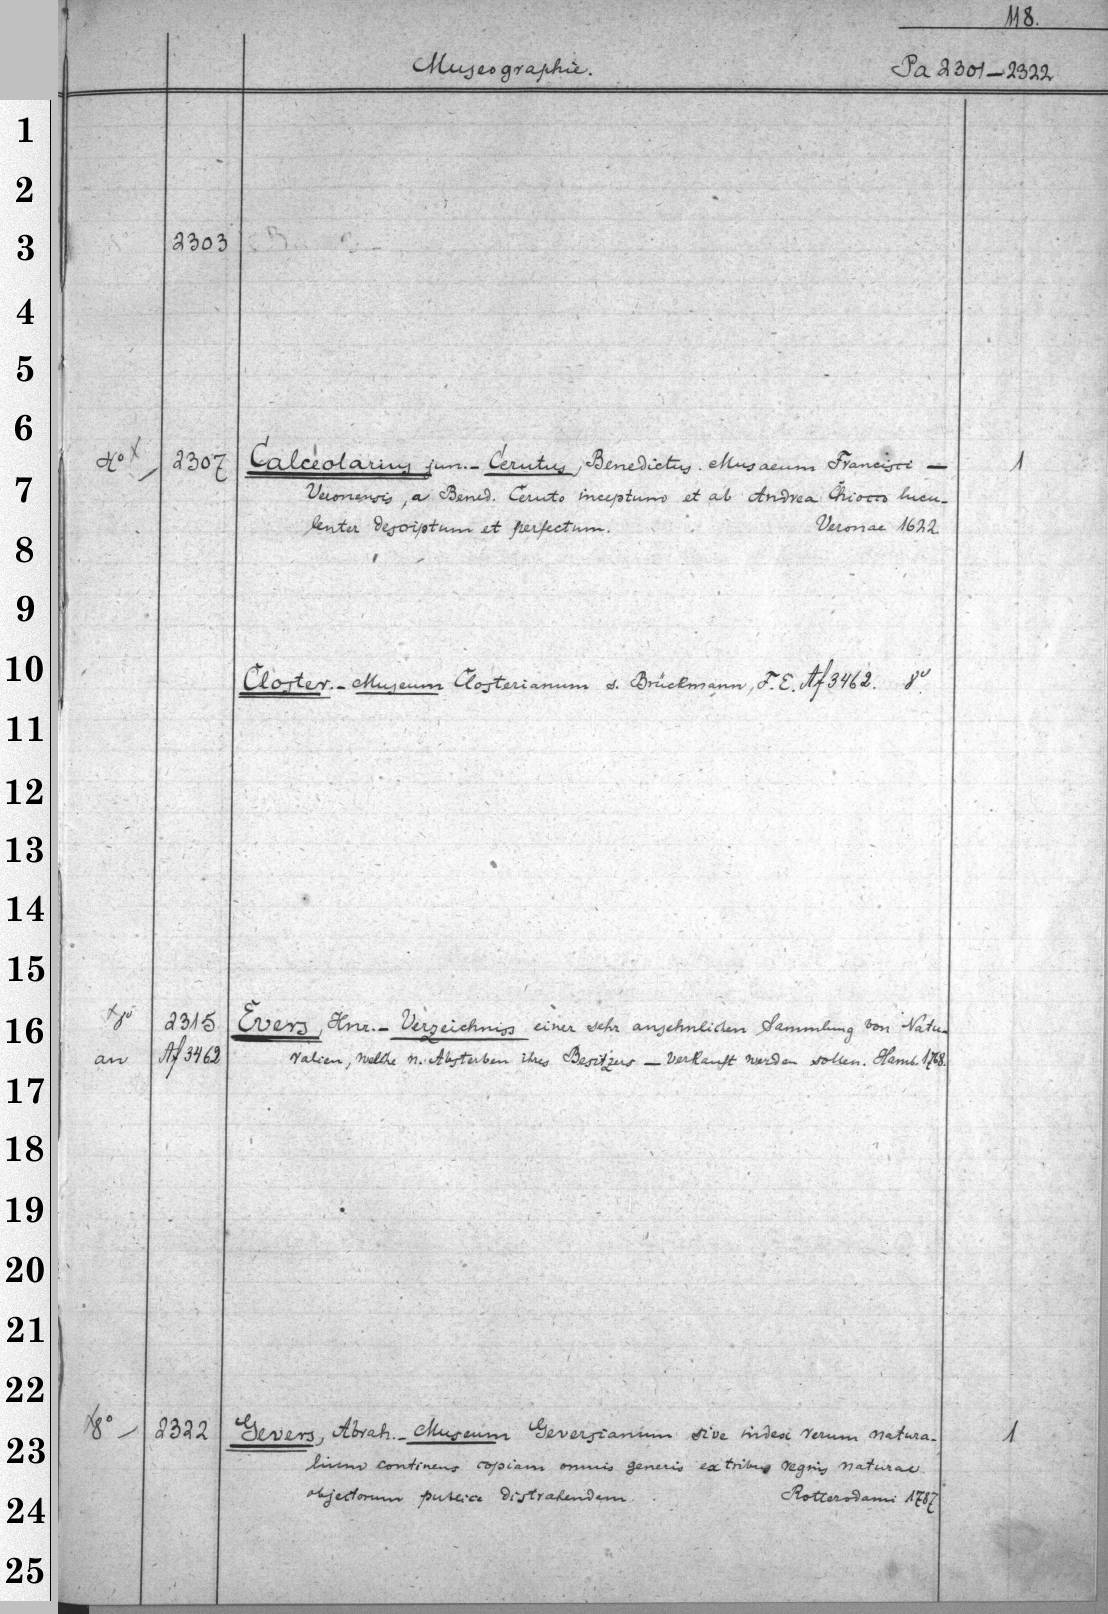 118.
Museographie. Pa 2301-2322
1
2
3 2303
4
5
6
4° X 2307 Calceolarius jun. - Cerutus, Benedictus. Musaeum Francisci — 1
7 Veronensis, a Bened. Ceruto inceptum et ab Andrea Chiocco lucu-
8 lenter descriptum et perfectum. Veronae 1622
9
10 Closter. - Museum Closterianum s. Brückmann, F. E. Af 3462. 8°
11
12
13
14
15
16 X 8° 2315 Evers, Hnr. - Verzeichniss einer sehr ansehnlichen Sammlung von Natu-
an Af 3462 ralien, welche n. Absterben ihres Besitzers — verkauft werden sollen. Hamb. 1768.
17
18
19
20
21
22
X 8° - 2322 Gevers, Abrah. - Museum Geversianum sive index rerum natura- 1
23 lium continens copiam omnis generis ex tribus regnis naturae
24 objectorum publice distrahendam. Rotterodami 1787
25